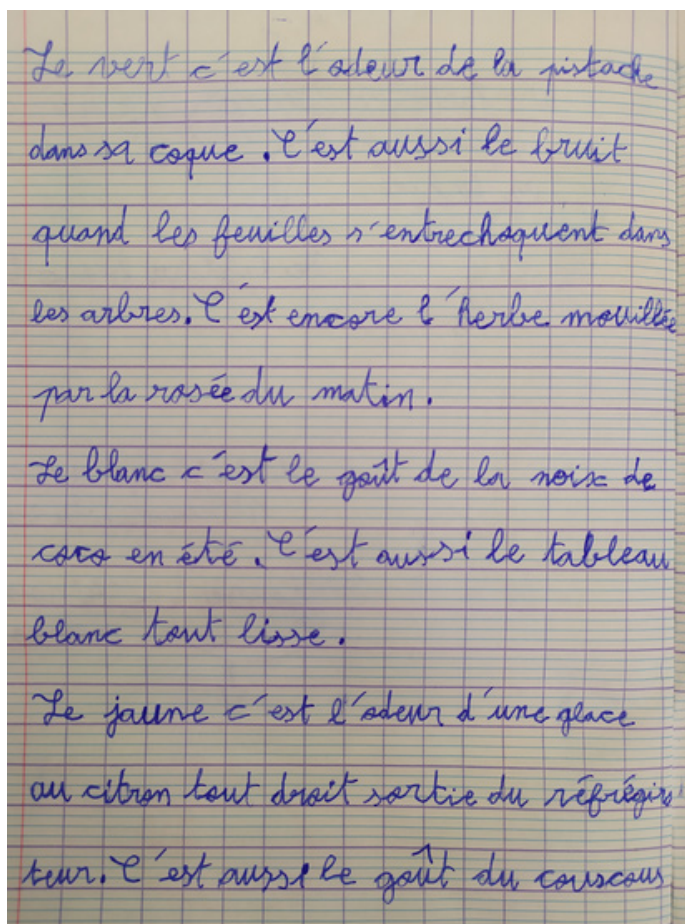 Le vert c'est l'odeur de la pistache
dans sa coque. C'est aussi le bruit
quand les feuilles s'entrechoquent dans
les arbres. C'est encore l'herbe mouillée
par la rosée du matin.
Le blanc c'est le goût de la noix de
coco en été. C'est aussi le tableau
blanc tout lisse.
Le jaune c'est l'odeur d'une glace
au citron tout droit sortie du réfrégira
teur. C'est aussi le goût du couscous